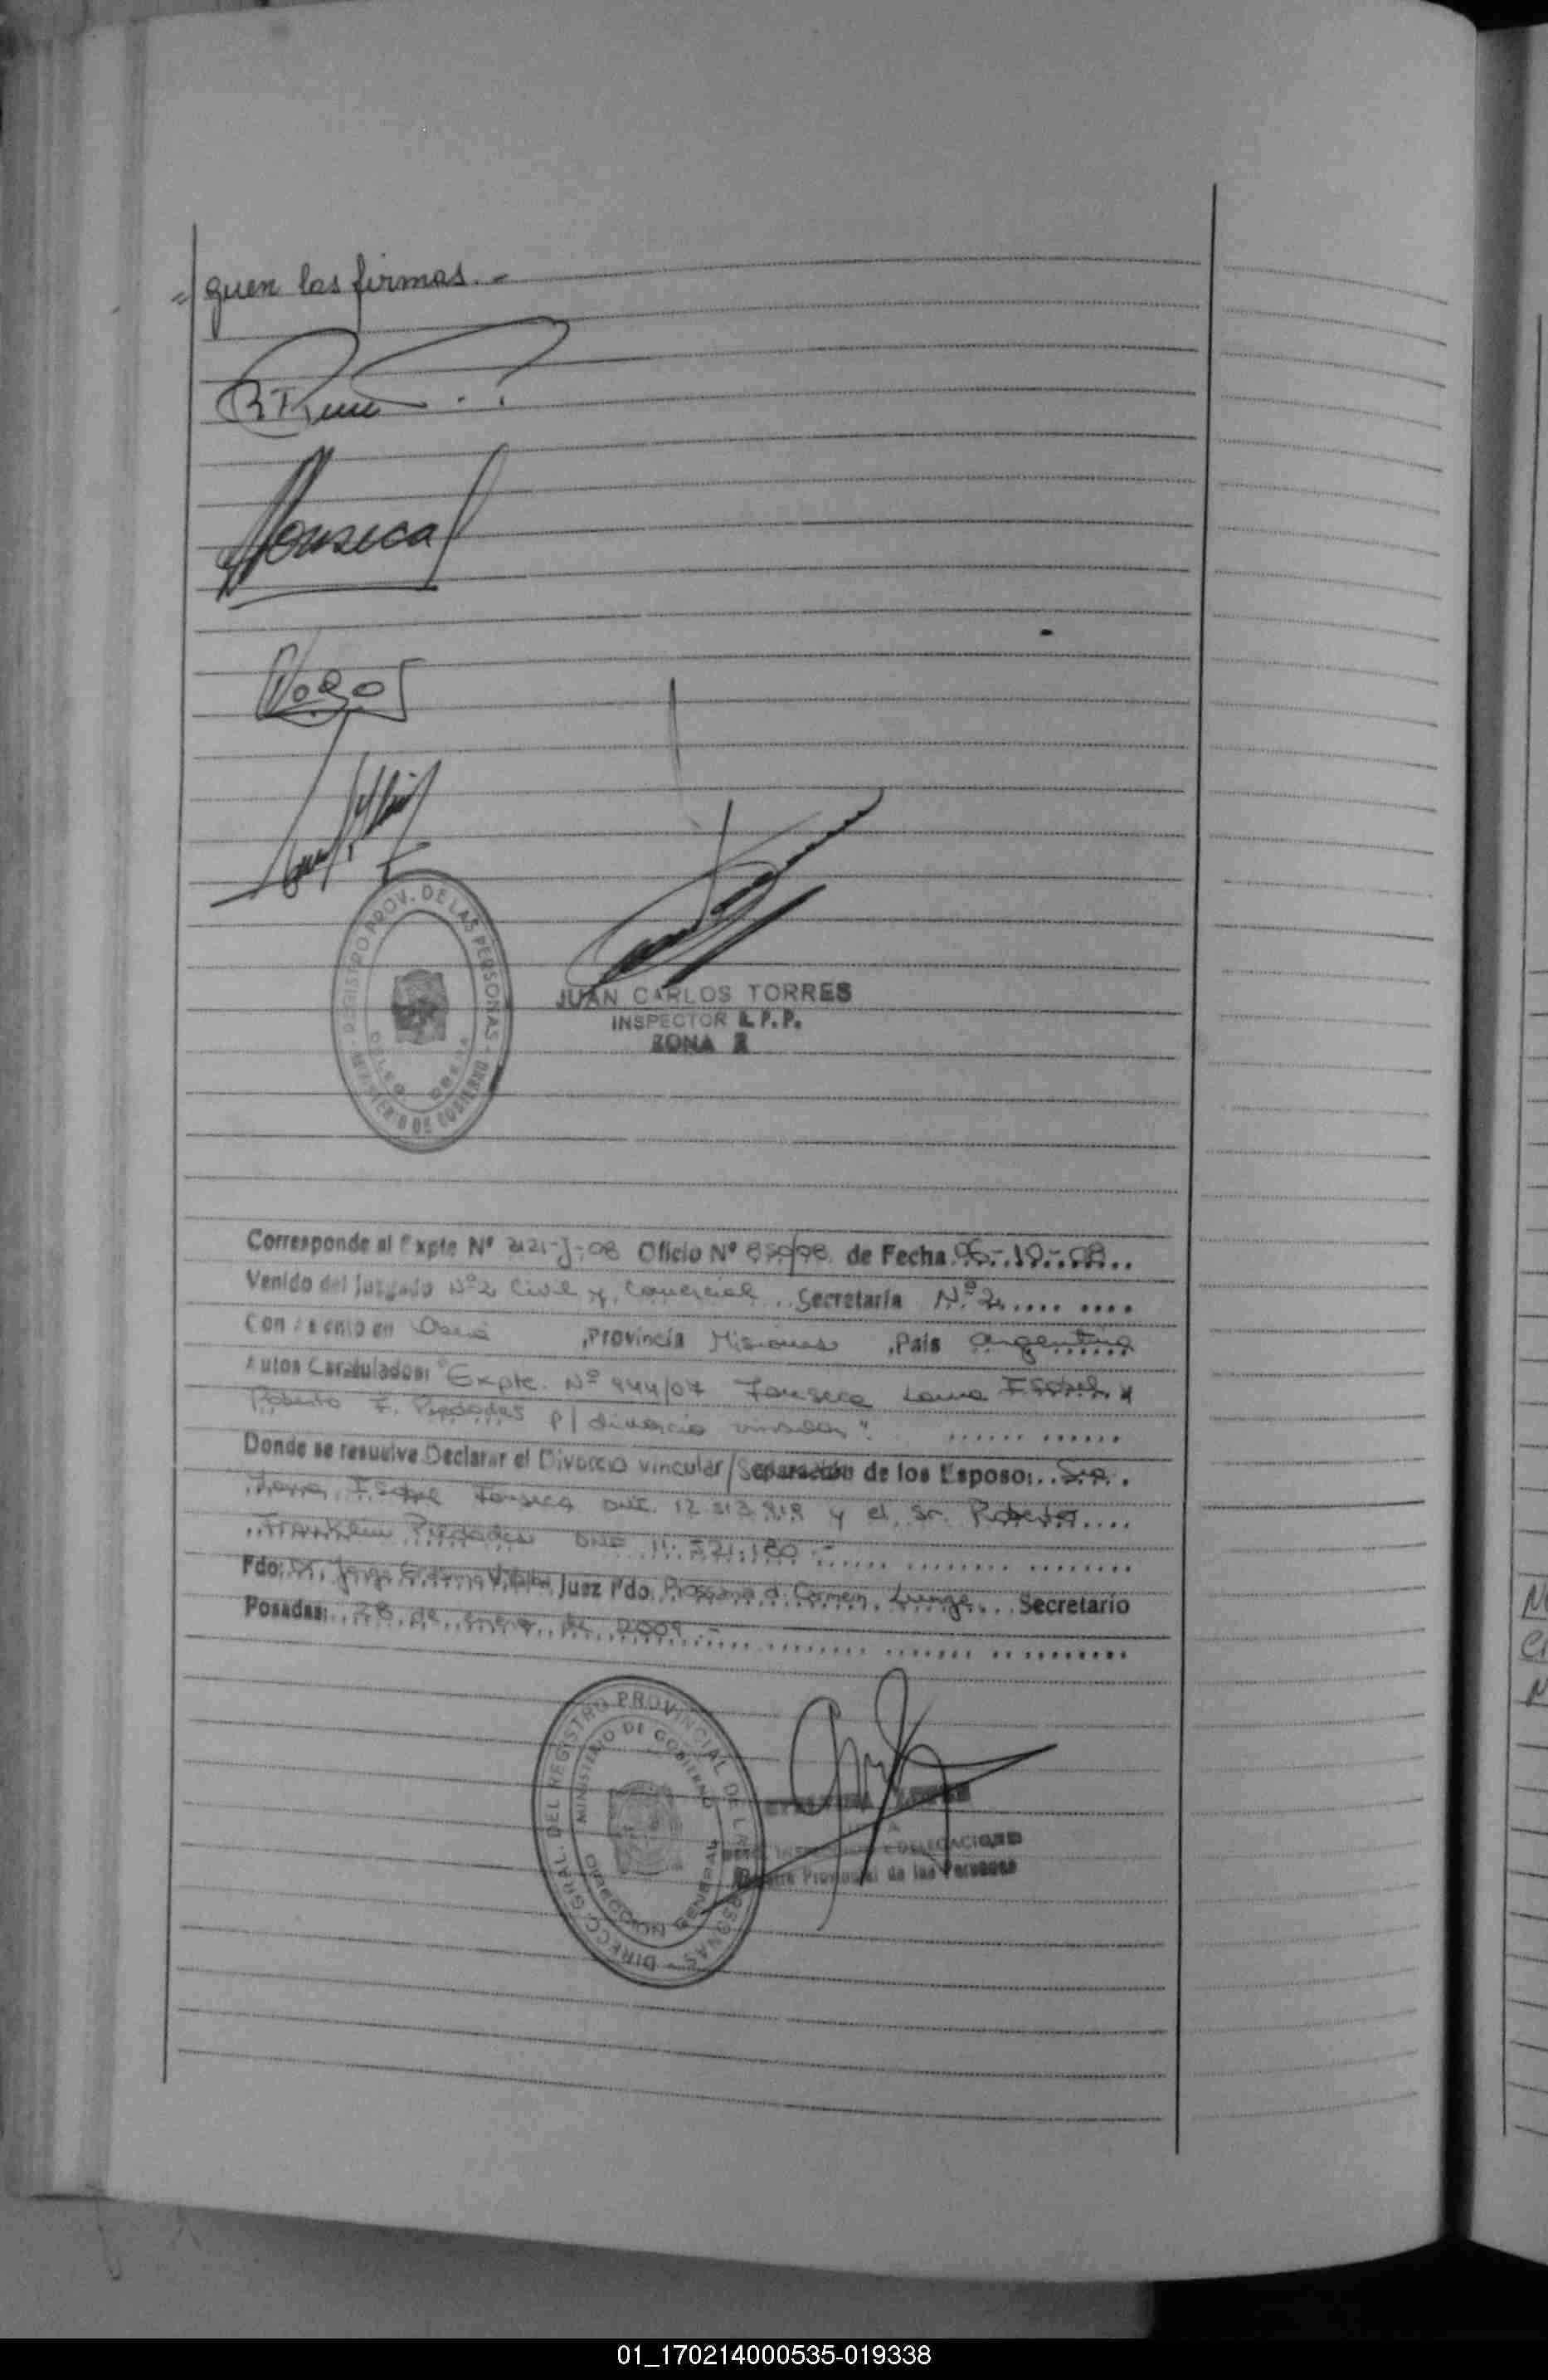 = quen las firmas.-
Fonseca
REGISTRO PROV. DE LAS PERSONAS - MINISTERIO DE GOBIERNO
JUAN CARLOS TORRES
INSPECTOR
ZONA
Corresponde al Expte Nº 2121-J-08 Oficio Nº 850/08 de Fecha 06-10-08
Venido del Juzgado Nº 2 Civil y Comercial Secretaría Nº 2
Con asiento en Oberá ,Provincia Misiones ,País Argentina
Autos Caratulados: "Expte. Nº 944/07 Fonseca Isabel y
Roberto F. p/ divorcio vincular".
Donde se resuelve Declarar el Divorcio vincular/Separación de los Esposo: Sra.
Isabel Fonseca DNI. 12.313.818 y el Sr. Roberto
Franklin DNI 11.521.180.-
Fdo: Dr. Jorge Juez Fdo. Rossana d. Carmen Secretario
Posadas: 28 de enero de 2009.-
DIRECC. GRAL. DEL REGISTRO PROVINCIAL DE LAS PERSONAS
MINISTERIO DE GOBIERNO
DIRECCION GENERAL
DELEGACIONES
Provincial de las Personas
01_170214000535-019338